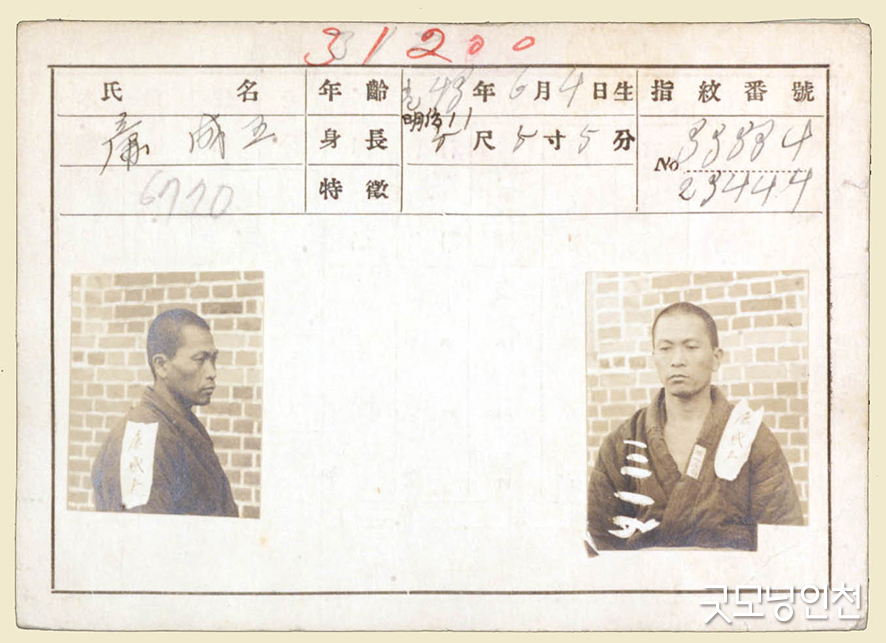 31200
氏名 年齡 43年6月4日生 指紋番號
明治11
成五 身長 5尺5寸5分 No 33334
23444
6770 特徵
成五
成五
굿모닝인천